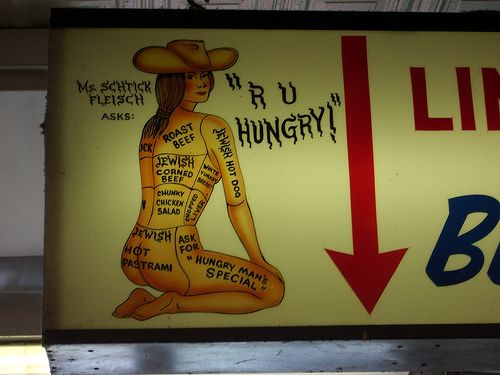 Ms SCHTICK
FLEISCH
ASKS:
"R U
HUNGRY!"
ROAST
BEEF
JEWISH HOT DOG
JEWISH
CORNED
BEEF
WHITE
TURKEY
BREAST
CHUNKY
CHICKEN
SALAD
CHOPPED
LIVER
JEWISH
HOT
PASTRAMI
ASK
FOR
"HUNGRY MAN'S
SPECIAL"